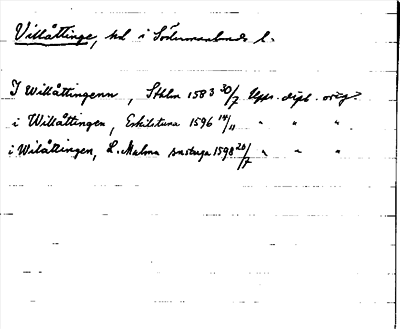 Villåttinge, hd i Södermanlands l.
I Willåttingenn, Sthlm 1583 30/7 Upps. dipl. orig.
i Willåttingen, Eskilstuna 1596 14/11 " " "
i Wilåttingen, L. Malma sastuga 1598 26/7 " " "